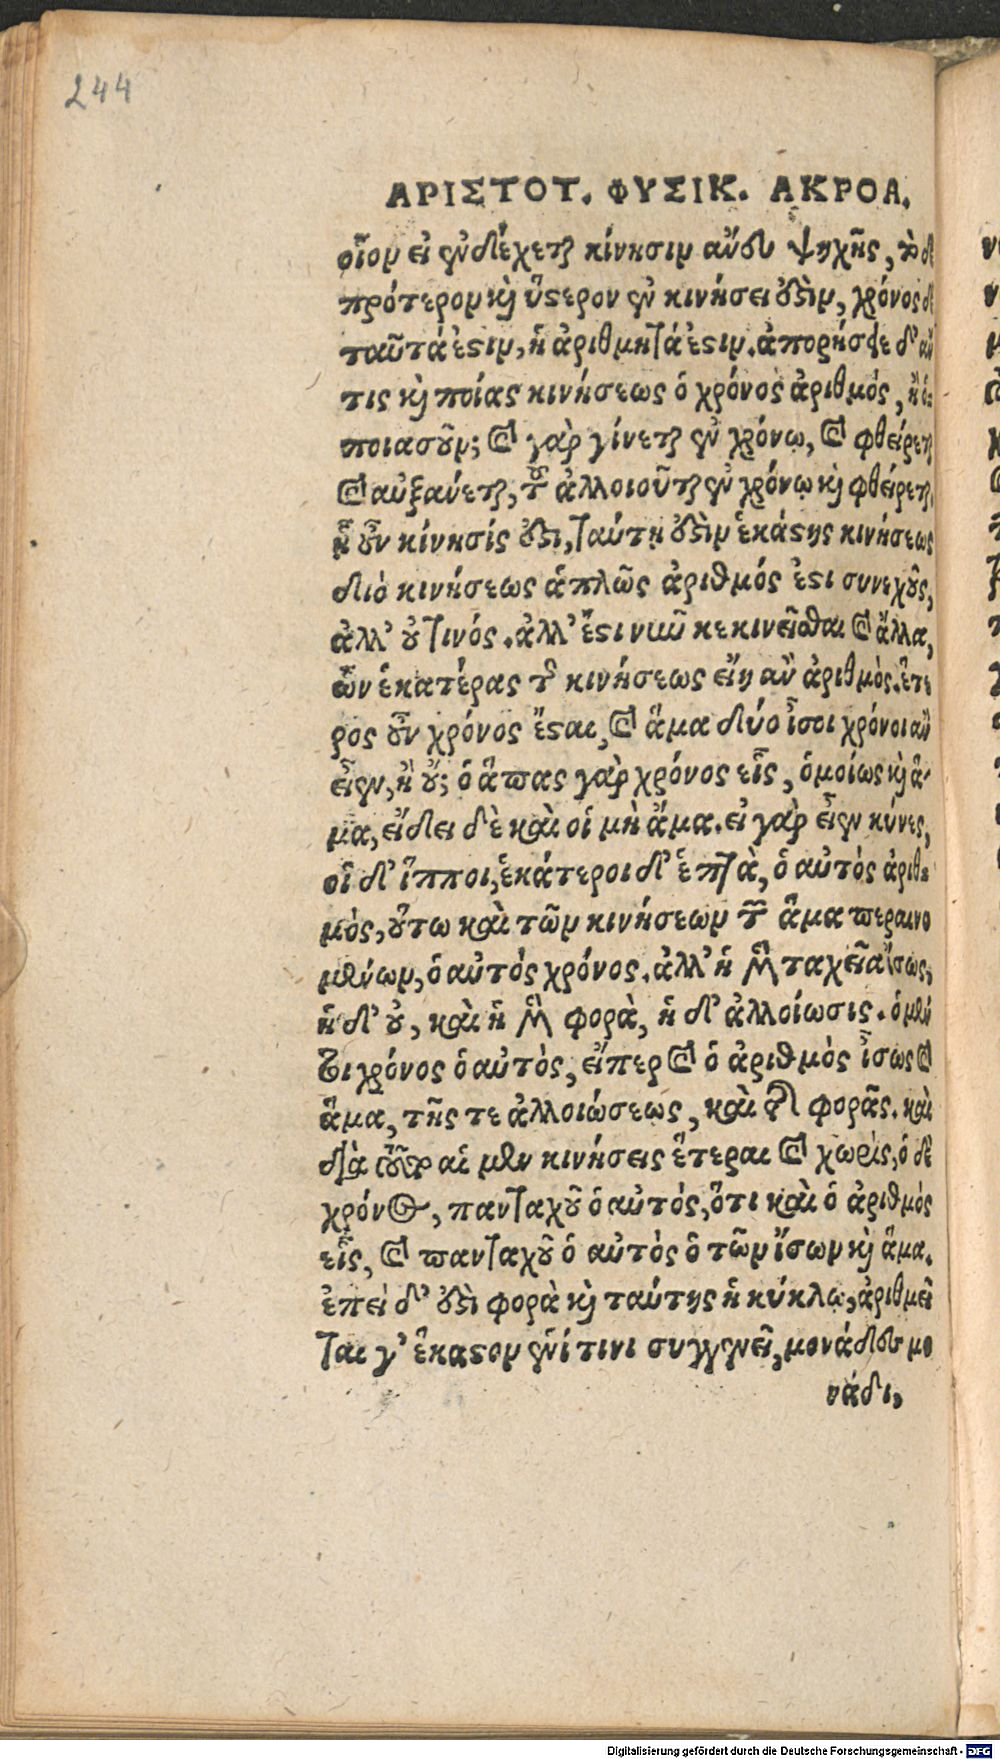 244
ΑΡΙΣΤΟΤ. ΦΥΣΙΚ. ΑΚΡΟΑ.
οἷον εἰ ἐνδέχεται κίνησιν ἄνευ ψηχῆς, τὸ δὲ
πρότερον καὶ ὕστερον ἐν κινήσει ἐστὶν, χρόνος δὲ
ταῦτά ἐστιν, ᾗ ἀριθμητά ἐστιν. ἀπορήσειε δ' ἄν
τις καὶ ποίας κινήσεως ὁ χρόνος ἀριθμός, ἢ ὁ-
ποιασοῦν; καὶ γὰρ γίνεται ἐν χρόνῳ, καὶ φθείρεται
καὶ αὐξαύεται, καὶ ἀλλοιοῦται ἐν χρόνῳ καὶ φθείρεται,
ᾗ οὖν κίνησίς ἐστι, ταύτῃ ἐστὶν ἑκάστης κινήσεως
διὸ κινήσεως ἁπλῶς ἀριθμός ἐστι συνεχοῦς,
ἀλλ' οὐ τινός. ἀλλ' ἔστι νῦν κεκινεῖσθαι καὶ ἄλλα,
ὧν ἑκατέρας τῆς κινήσεως εἴη ἂν ἀριθμός. ἕτε
ρος οὖν χρόνος ἔσται, καὶ ἅμα δύο ἶσοι χρόνοι ἂν
εἶεν, ἢ οὔ; ὁ ἅπας γὰρ χρόνος εἷς, ὁμοίως καὶ ἅ-
μα, εἴδει δὲ καὶ οἱ μὴ ἅμα. εἰ γὰρ εἶεν κύνες,
οἳ δ' ἵπποι, ἑκάτεροι δ' ἑπτὰ, ὁ αὐτὸς ἀριθ-
μὸς, οὕτω καὶ τῶν κινήσεων τῶν ἅμα περαινο
μένων, ὁ αὐτὸς χρόνος. ἀλλ' ἡ μὲν ταχεῖα ἴσως,
ἡ δ' οὐ, καὶ ἡ μὲν φορὰ, ἡ δ' ἀλλοίωσις. ὁ μέν
τοι χρόνος ὁ αὐτὸς, εἴπερ καὶ ὁ ἀριθμὸς ἶσως καὶ
ἅμα, τῆς τε ἀλλοιώσεως, καὶ τῆς φορᾶς. καὶ
διὰ τοῦτο αἱ μὲν κινήσεις ἕτεραι καὶ χωρὶς, ὁ δὲ
χρόνος, πανταχοῦ ὁ αὐτός, ὅτι καὶ ὁ ἀριθμὸς
εἷς, καὶ πανταχοῦ ὁ αὐτὸς ὁ τῶν ἴσων καὶ ἅμα.
ἐπεὶ δ' ἐστὶ φορὰ καὶ ταύτης ἡ κύκλῳ, ἀριθμεῖ
ται γ' ἕκαστον ἑνί τινι συγγενεῖ, μονάδες μο
νάδι,
Digitalisierung gefördert durch die Deutsche Forschungsgemeinschaft - DFG